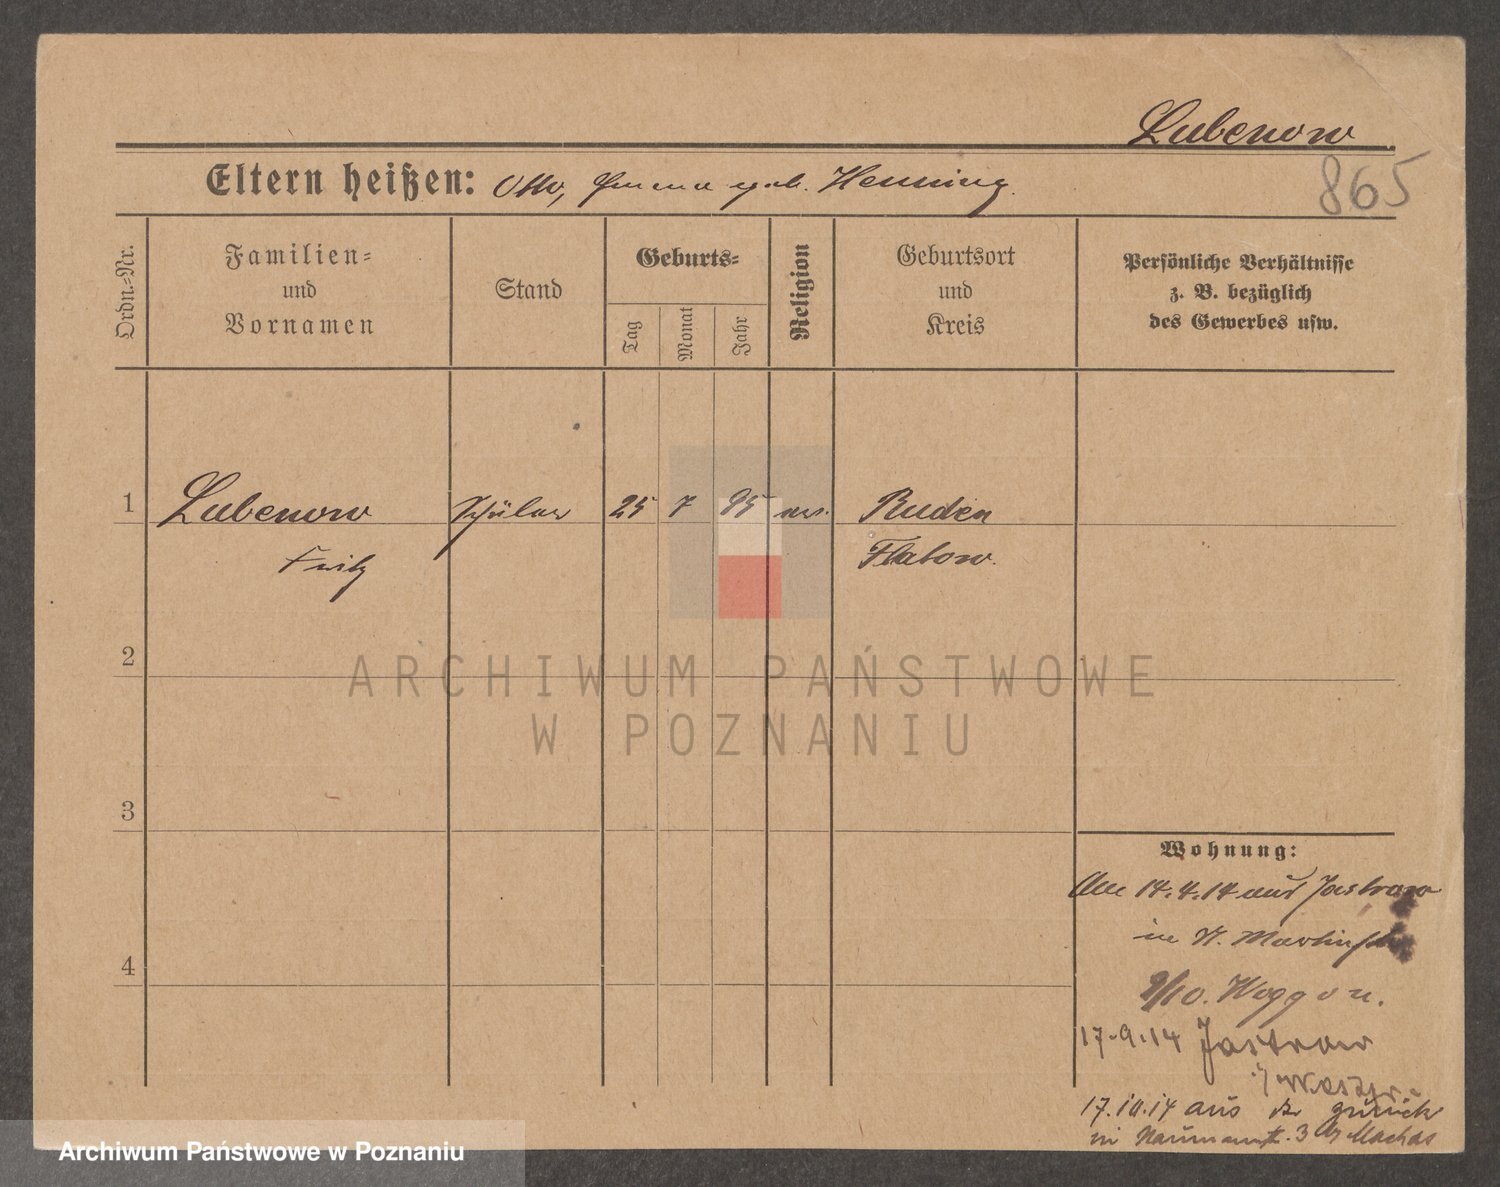 Lubenow
Eltern heißen: Otto, Emma geb. Henning.
865
Ordn.=Nr.
Familien=
und
Vornamen
Stand
Geburts=
Tag
Monat
Jahr
Religion
Geburtsort
und
Kreis
Persönliche Verhältnisse
z. B. bezüglich
des Gewerbes usw.
1 Lubenow Schüler 25 7 95 ev. Buden
Fritz Flatow.
2
ARCHIWUM PAŃSTWOWE
W POZNANIU
3
Wohnung:
14.4.14 aus Jastrow
in St. Martinstr.
4
9/10. Woggon.
17.9.14 Jastrow
17.10.14 aus zurück
in Naumannstr. 3
Archiwum Państwowe w Poznaniu